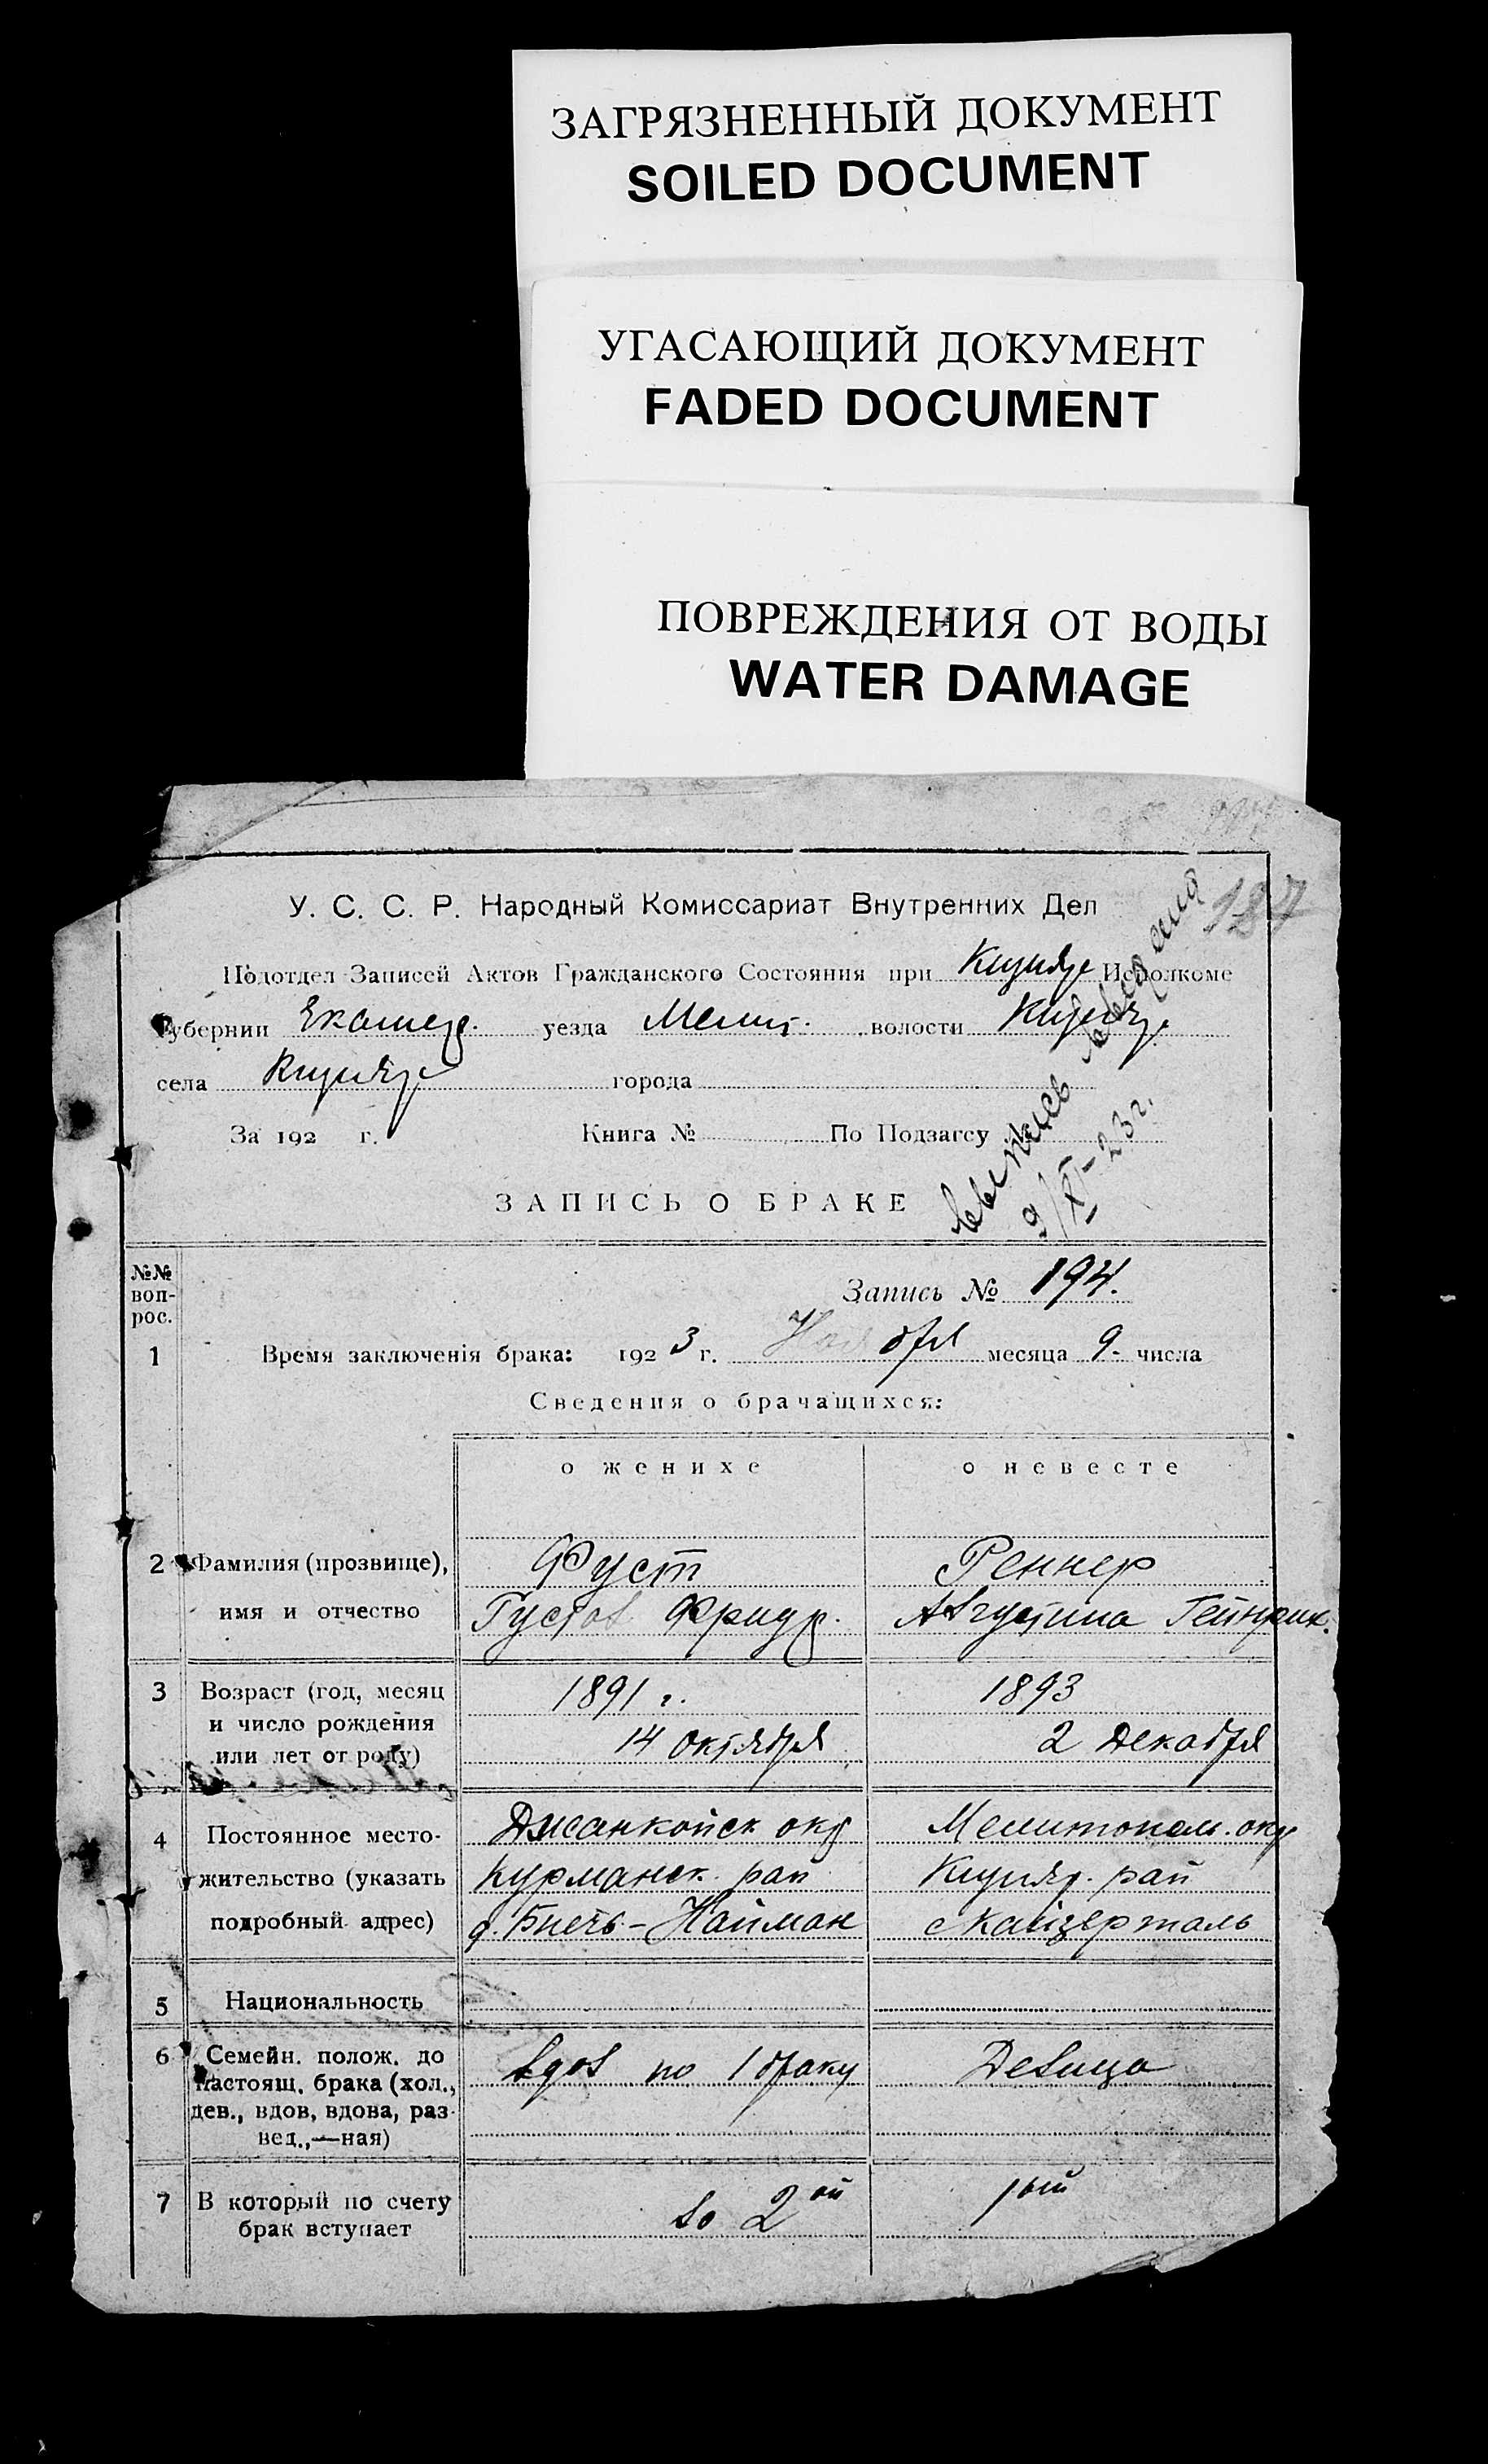 ЗАГРЯЗНЕННЫЙ ДОКУМЕНТ
SOILED DOCUMENT
УГАСАЮЩИЙ ДОКУМЕНТ
FADED DOCUMENT
ПОВРЕЖДЕНИЯ ОТ ВОДЫ
WATER DAMAGE
187
У. С. С. Р. Народный Комиссариат Внутренних Дел
Подотдел Записей Актов Гражданского Состояния при Исполкоме
Губернии Екатер. уезда Мелит. волости
села города
За 192 г. Книга № По Подзагсу №
9/XI-23 г.
ЗАПИСЬ О БРАКЕ
№№ воп-
рос.
Запись № 194.
1 Время заключенія брака: 1923 г. Ноября месяца 9. числа
Сведения о брачащихся:
о женихе о невесте
2 Фамилия (прозвище), Фуст Реннер
имя и отчество Густав Фридр. Августина Гейнрих.
3 Возраст (год, месяц 1891 г. 1893
и число рождения
или лет от роду) 14 октября 2 Декабря
4 Постоянное место- Джанкойск окр Мелитопол. окр
жительство (указать Курманск. рай рай
подробный адрес) д. Найман с Кайзерталь
5 Национальность
6 Семейн. полож. до вдов по 1 браку Девица
настоящ. брака (хол.,
дев., вдов, вдова, раз-
вед.,—ная)
7 В который по счету во 2ой 1ый
брак вступает